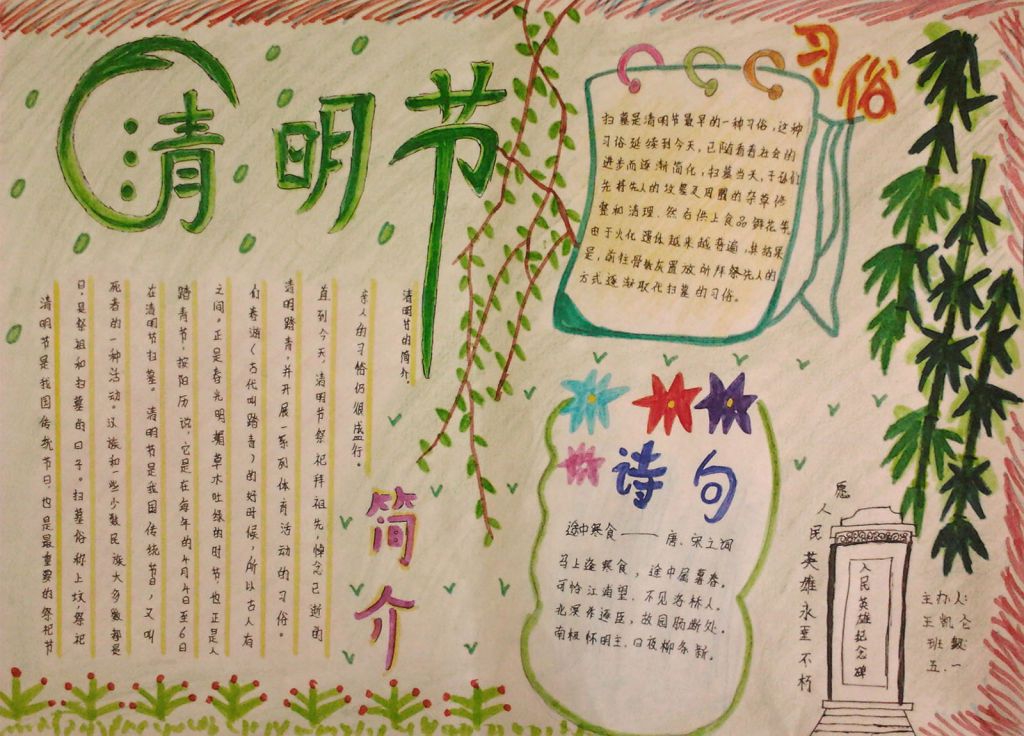 清明节
清明节的简介.
清明节是我国传统节日,也是最重要的祭祀节
日,是祭祖和扫墓的日子。扫墓俗称上坟,祭祀
死者的一种活动。汉族和一些少数民族大多数都是
在清明节扫墓。清明节是我国传统节日,又叫
踏青节,按阳历说,它是在每年的4月4日至6日
之间。正是春光明媚草木吐绿的时节,也正是人
们春游(古代叫踏青)的好时候,所以古人有
清明踏青,并开展一系列体育活动的习俗。
直到今天,清明节祭祀拜祖先,悼念已逝的
亲人的习俗仍很盛行。
简介
习俗
扫墓是清明节最早的一种习俗,这种
习俗延续到今天,已随着着社会的
进步而逐渐简化,扫墓当天,子孙们
先将先人的坟墓及周围的杂草修
整和清理,然后供上食品鲜花等
由于火化遗体越来越普遍,其结果
是,前往骨骸灰置放所拜祭先人的
方式逐渐取代扫墓的习俗。
诗句
途中寒食——唐.宋之问
马上逢寒食,途中属暮春。
可怜江浦望,不见洛桥人。
北溟逐臣,故园肠断处。
南极怀明主,日夜柳条新。
愿人民英雄永垂不朽
人民英雄纪念碑
主办人:
王凯
班级
五.一